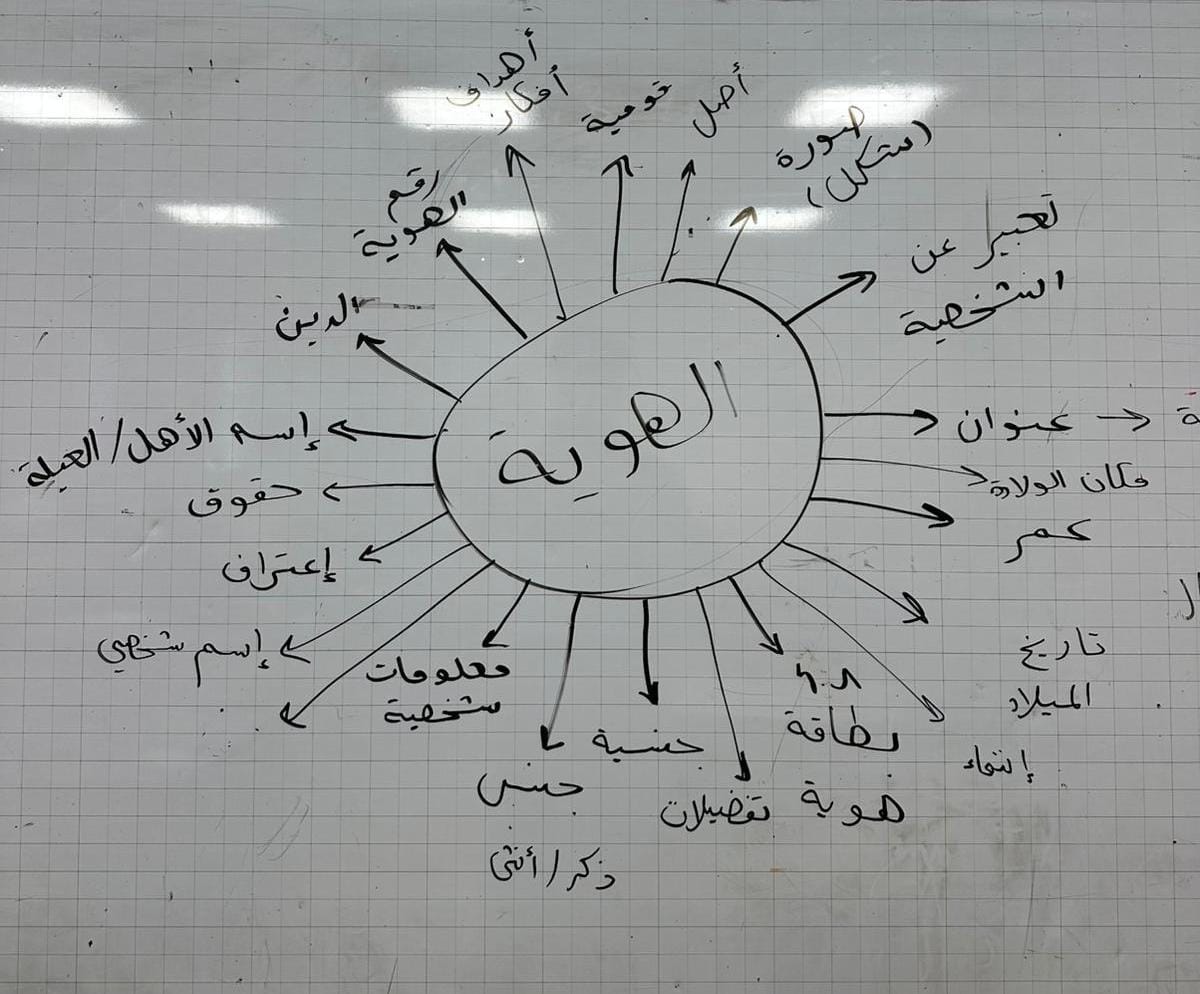 الهوية
أهداف
أفكار
قومية
أصل
صورة
(شكل)
تعبير عن
الشخصية
عنوان
مكان الولادة
عمر
تاريخ
الميلاد
إنتماء
بطاقة
هوية
تفضيلات
جنسية
جنس
ذكر/أنثى
معلومات
شخصية
إسم شخصي
إعتراف
حقوق
إسم الأهل/العيلة
الدين
رقم
الهوية